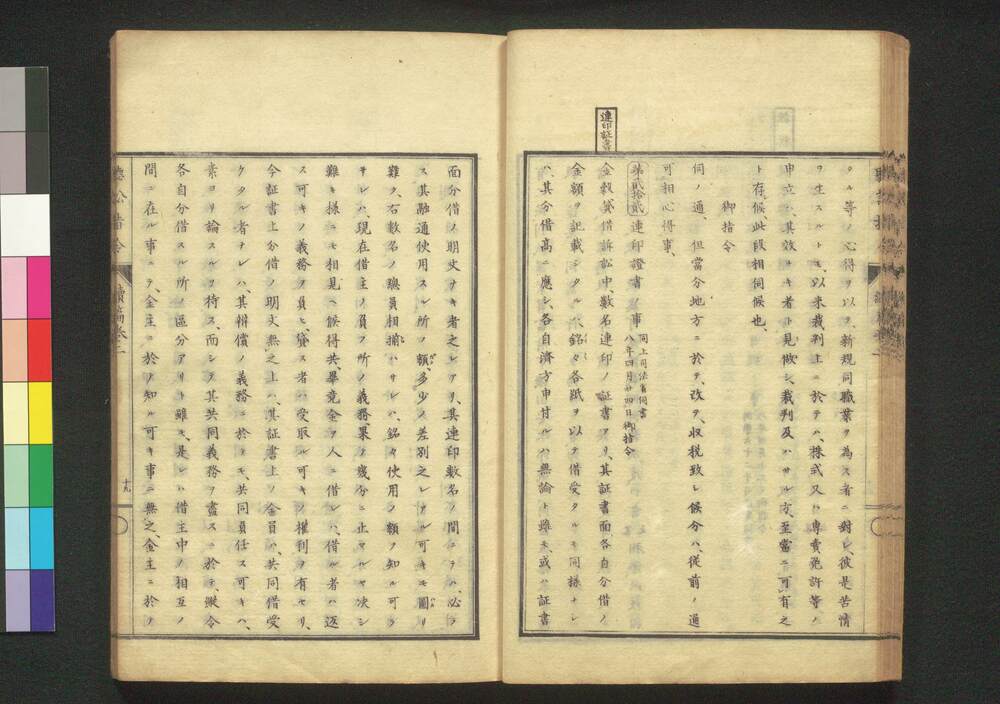 ヲル等ノ心得ヲ以テ、新規同職業ヲ為ス者ニ對シ彼是苦情
ヲ生スルトモ、以来裁判上ニ於テハ、株式又ハ専賣免許等ノ
申立ハ、其效ナキ者ト見做シ、裁判及ハサル方、至當ニ可有之
ト存候、此段相伺候也、
御指令
伺ノ通、但當分地方ニ於テ、改テ収税致シ候分ハ、従前ノ通
可相心得事、
連印証書
第貳拾貳 連印證書ノ事 同上司法省伺書 八年四月廿四日御指令
金穀貸借訴訟中、数名連印ノ証書ヲ以、其証書面、各自分借ノ
金額ヲ記載シタルハ、銘々各紙ヲ以テ借受タルモ同様ナレ
ハ、其分借高ニ應シ、各自済方申付ルハ無論ト雖モ、或ハ証書
面分借ノ明文ナキ者之レアリ、其連印数名ノ間ニテハ、必ラ
ス其融通使用スル所ノ額、多少ノ差別之レアル可キモ圖リ
難ク、右数名ノ總員相揃ハサレハ、銘々使用ノ額ヲ知ル可ラ
サレハ、現在借主ノ負フ所ノ義務、果テ幾分ニ止マルヤ決シ
難キ様ニモ相見ヘ候得共、畢竟金ヲ人ニ借レハ、借ル者ハ返
ス可キノ義務ヲ負ヒ、貸ス者ハ受取ル可キノ權利ヲ有セリ、
今証書上分借ノ明文無之上ハ、其証書上ノ全員ハ、共同借受
ケタル者ナレハ、其辨償ノ義務ニ於テモ、共同負任ス可キハ、
素ヨリ論スルヲ待ス、而シテ其共同義務ヲ盡スニ於テ、縦令
各自分借スル所ノ區分アリト雖モ、是レハ借主中ノ相互ノ
間ニ在ル事ニテ、金主ニ於テ知ル可キ事ニ無之、金主ニ於テ
聴訟指令
續稿巻二
十九